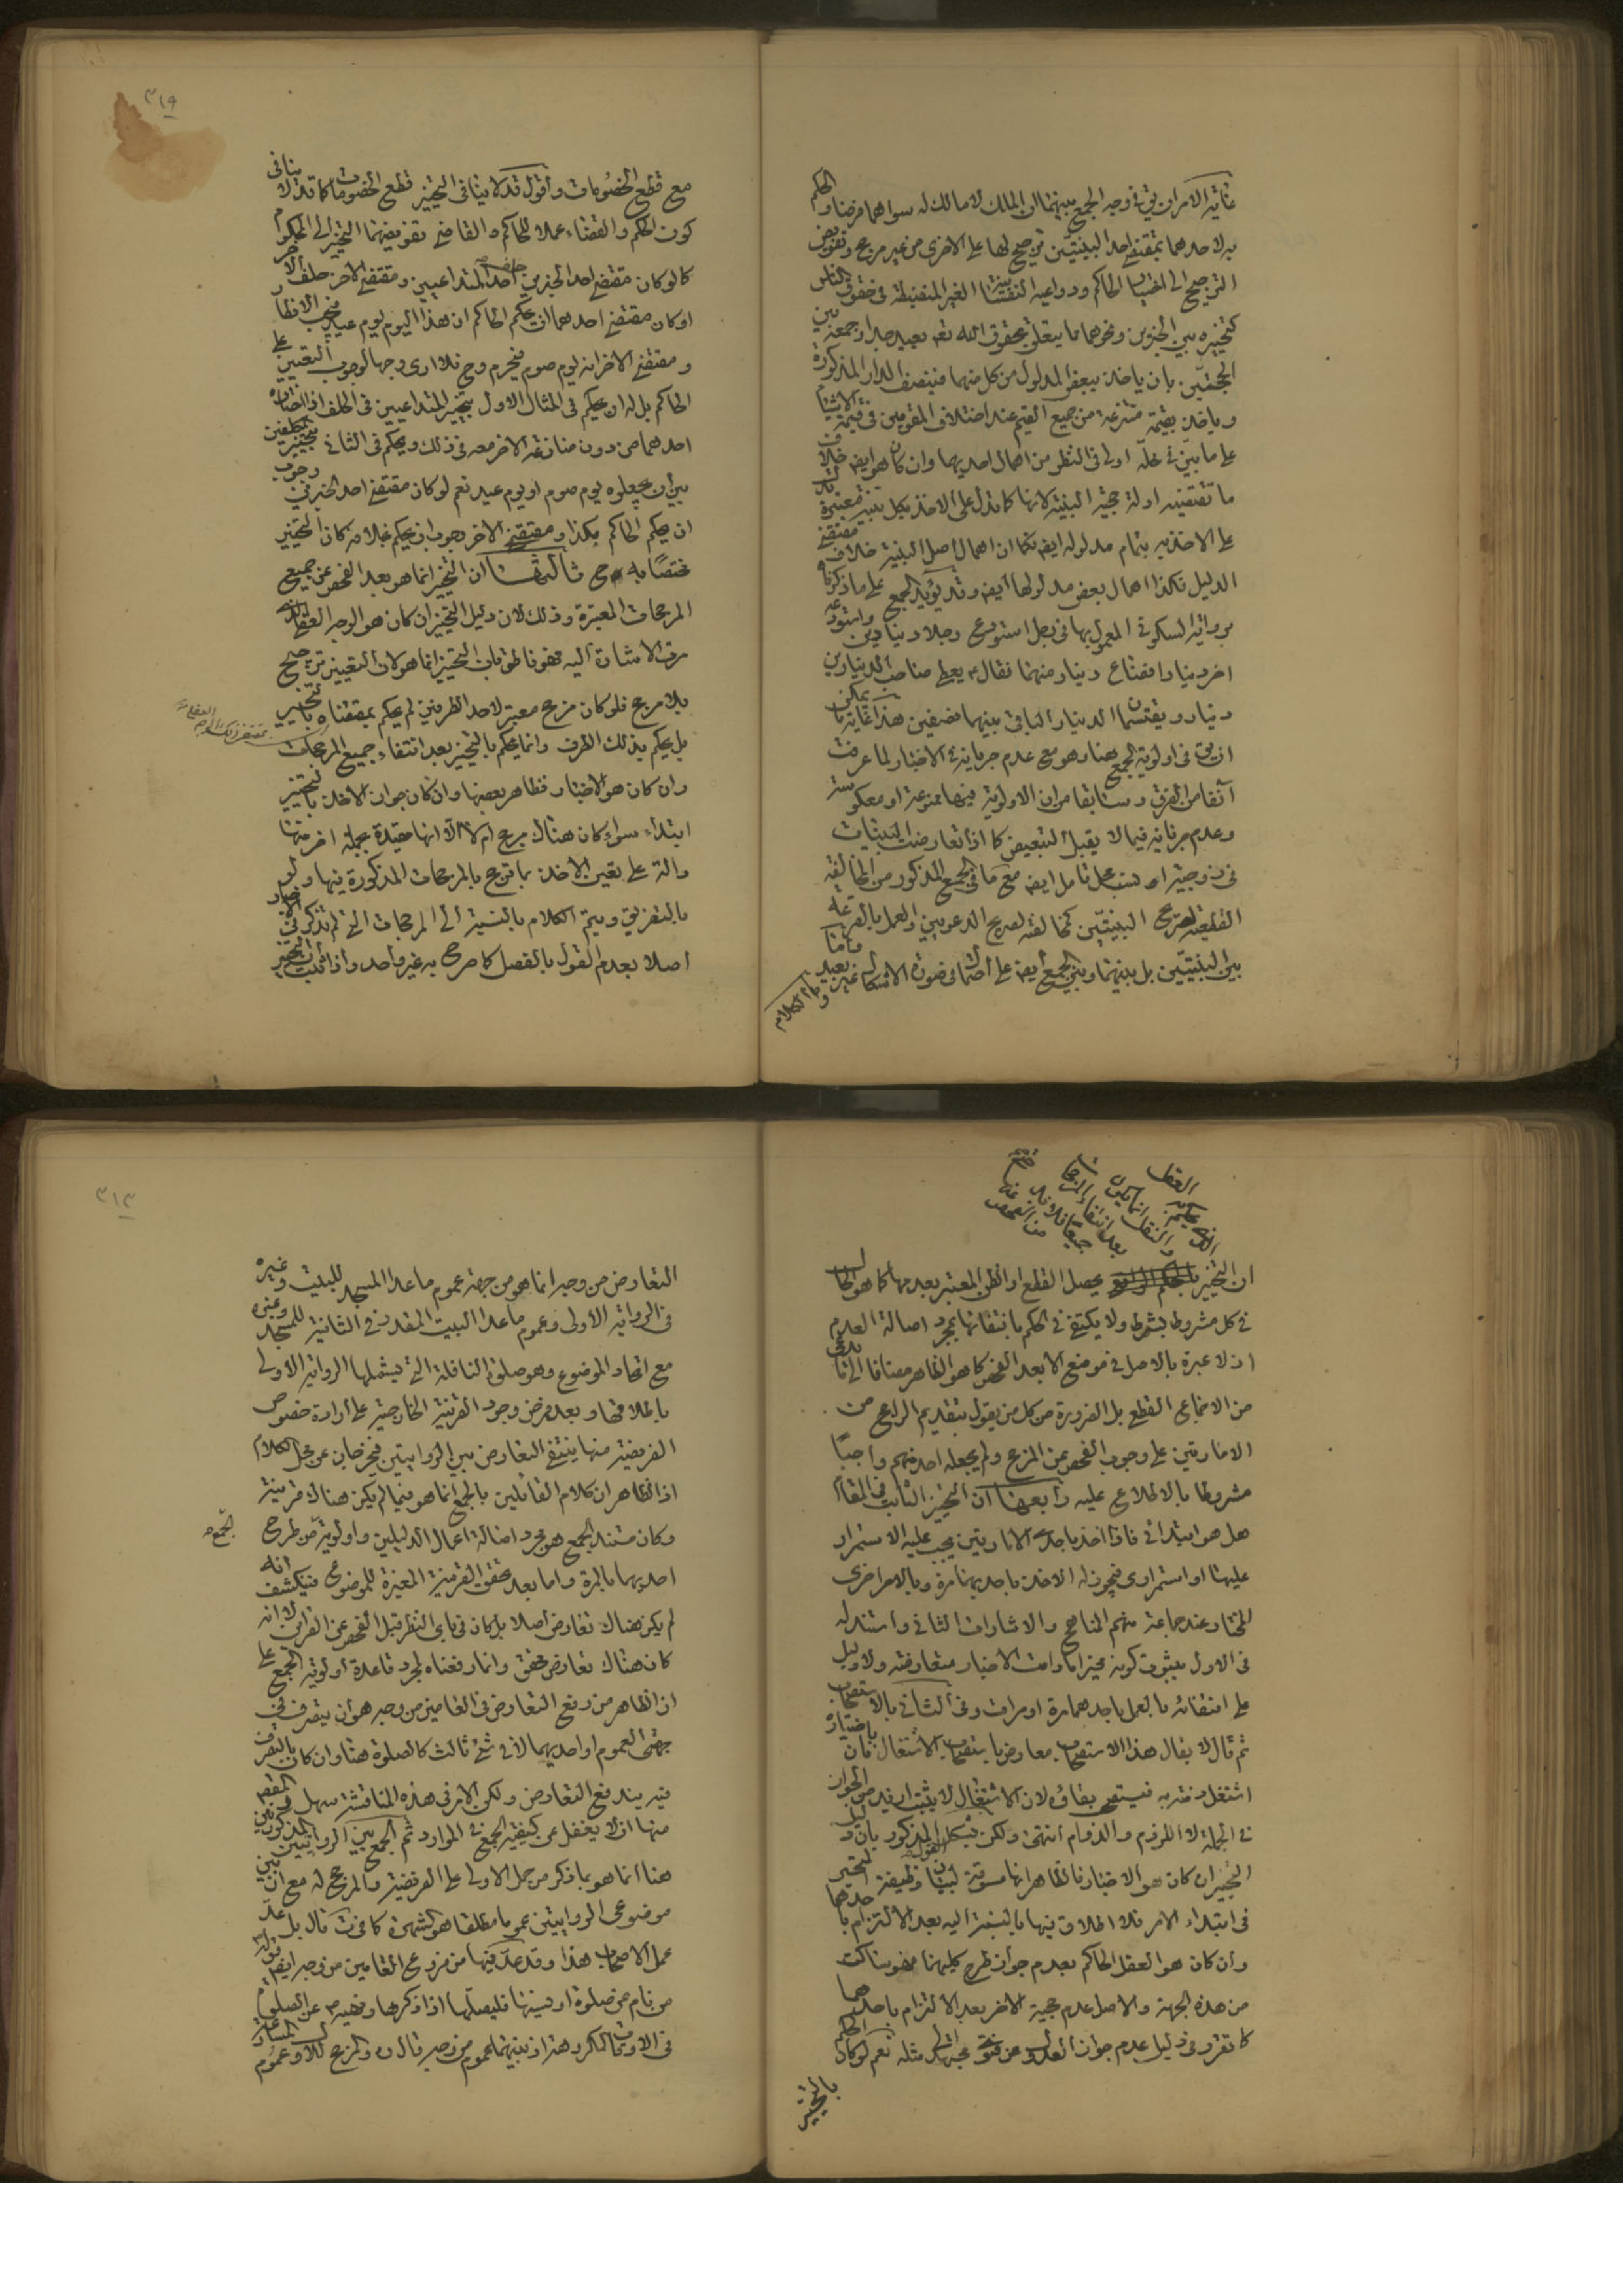 غاية الامران يق في وجه الجمع بينهما ان المال لا مالك له سواهما فرضا والحكم
به لاحدهما بمقتضى احد البينتين ترجيح لها على الاخرى من غير مرجح وتفويض
الترجيح الى اختيار الحاكم ودواعيه النفسانية الغير المنضبطة في حقوق الناس
كتخييره بين الخبرين ونحوهما ما يتعلق بحقوق الله تعه بعيد جدا وجمعه بين
الحجتين بان ياخذ ببعض المدلول من كل منهما فينصف الدار المذكورة
وياخذ بقيمة منتزعة من جميع القيم عند اختلاف المقومين في قيمة الاشياء
على ما بيّن في محلّه اولى في النظر من اهمال احديهما وان كان هو ايضا خلاف
ما تقتضيه ادلة حجية البينة لانها كما تدل على الاخذ بكل بينة معتبرة تدل
على الاخذ به بتمام مدلوله ايضا فكما ان اهمال اصل البينة خلاف مقتضى
الدليل فكذا اهمال بعض مدلولها ايضا وقد يؤيد الجمع على ما ذكرناه
برواية السكونى المعمول بها في رجل استودع رجلا دينارين واستودعه
اخر دينارا فضاع دينار منهما فقال ع يعطى صاحب الدينارين
دينار ويقتسمان الدينار الباقى بينهما نصفين هذا غاية ما يمكن
ان يق في اولوية الجمع هنا وهو مع عدم جريانه في الاخبار لما عرفت
آنفا من الفرق وسابقا من ان الاولوية فيها ممنوعة او معكوسة
وعدم جريانه فيما لا يقبل التبعيض كما اذا تعارضت البينات
في زوجية او نسب محل تامل ايضا مع ما في الجمع المذكور من المخالفة
القطعية لصريح البينتين كمخالفته لصريح الدعويين والعمل بالقرعة
بين البينتين بل بينهما وبين الجمع ايضا على اشكال في صورة الاشكال غير بعيد وتمام الكلام
٣١٩
مع قطع الخصومات واقول قد لا ينافى التخيير قطع الخصومات كما قد لا ينافى
كون الحكم والقضاء عملا للحاكم والقاضى تفويضهما التخيير الى المحكوم
كما لو كان مقتضى احد الخبرين حلف احد المتداعيين ومقتضى الاخر حلف الآخر
او كان مقتضى احدهما ان يحكم الحاكم ان هذا اليوم يوم عيد فيجب الافطار
ومقتضى الاخر انه يوم صوم فيحرم وح فلا ارى وجها لوجوب التعيين على
الحاكم بل له ان يحكم في المثال الاول بتخيير المتداعيين في الحلف اذا اختاره
احدهما من دون منازعة الاخر معه في ذلك ويحكم في الثانى بتخيير المكلفين
بين ان يجعلوه يوم صوم او يوم عيد نعم لو كان مقتضى احد الخبرين وجوب
ان يحكم الحاكم بكذا ومقتضى الآخر وجوب ان يحكم بخلافه كان التخيير
مختصّا به ح ثالثها ان التخيير انما هو بعد الفحص عن جميع
المرجحات المعتبرة وذلك لان دليل التخيير ان كان هو الوجه العقلى الذى
مرت الاشارة اليه فهو ناطق بان التخيير انما هو لان التعيين ترجيح
بلا مرجح فلو كان مرجح معتبر لاحد الطرفين لم يحكم بمقتضاه بالتخيير
بل يحكم بذلك الطرف وانما يحكم بالتخيير بعد انتفاء جميع المرجحات
بمقتضى ذلك الوجه العقلى
وان كان هو الاخبار فظاهر بعضها وان كان جواز الاخذ بالتخيير
ابتداء سواء كان هناك مرجح ام لا الا انها مقيدة بجملة اخر منها
دالة على تعين الاخذ بما ترجح بالمرجحات المذكورة فيها ولو
بالتفريق ويتم الكلام بالنسبة الى المرجحات التى لم تذكر في الاخبار
اصلا بعدم القول بالفصل كما صرح به غير واحد واذا ثبت ان التخيير
الذى يحكم به العقل
والنقل انما يكون
بعد انتفاء المرجحات
جميعا فلا بد ح
من الفحص عنه
ان التخيير يحصل القطع او الظن المعتبر بعدمها كما هو الحال
في كل مشروط بشرط ولا يكتفى في الحكم بانتفائها بمجرد اصالة العدم
اذ لا عبرة بالاصل في موضع الا بعد الفحص كما هو الظاهر مضافا الى ما يدعى
من الاجماع القطعى بل الضرورة من كل من يقول بتقديم الراجح من
الامارتين على وجوب الفحص عن المرجح ولم يجعله احد منهم واجبا
مشروطا بالاطلاع عليه رابعها ان التخيير الثابت في المقام
هل هو ابتدائى فاذا اخذ باحدى الامارتين يجب عليه الاستمرار
عليها او استمرارى فيجوز له الاخذ باحديهما مرة وبالاخرى اخرى
المختار عند جماعة منهم المناهج والاشارات الثانى واستدل له
في الاول بثبوت كونه مخيرا ما دامت الاخبار متعارضة ولا دليل
على انتفائه بالعمل باحدهما مرة او مرات وفى الثانى بالاستصحاب
ثم قال لا يقال هذا الاستصحاب معارض باستصحاب الاشتغال فان باختياره
اشتغل ذمته به فيستصحب بقاؤه لان الاشتغال لا يثبت ازيد من الجواز
في الجملة لا اللزوم والدوام انتهى ولكن يشكل القول المذكور بان دليل
التخيير ان كان هو الاخبار فالظاهر انها مسوقة لبيان وظيفة المتحير
في ابتداء الامر فلا اطلاق فيها بالنسبة اليه بعد الالتزام باحدها
وان كان هو العقل الحاكم بعدم جواز طرح كليهما فهو ساكت
من هذه الجهة والاصل عدم حجية الاخر بعد الالتزام باحدهما
كما تقرر في دليل عدم جواز العدول عن فتوى مجتهد الى مثله نعم لو كان الحاكم
بالتخيير
٣١٣
التعارض من وجه انما هو من جهة عموم ما عدا المسجد للبيت وغيره
في الرواية الاولى وعموم ما عدا البيت المقدر في الثانية للمسجد وغيره
مع اتحاد الموضوع وهو صلوة النافلة التى يشملها الرواية الاولى
باطلاقها وبعد فرض وجود القرينة الخارجية على ارادة خصوص
الفريضة منها ينتفى التعارض بين الروايتين فيخرجان عن محل الكلام
اذ الظاهر ان كلام القائلين بالجمع انما هو فيما لم يكن هناك قرينة
وكان مستند الجمع هو مجرد اصالة اعمال الدليلين واولويته من طرح
احديهما بالمرة واما بعد تحقق القرينة المعينة للموضوع فينكشف انه
لم يكن هناك تعارض اصلا بل كان في بادى النظر قبل الفحص عن القراين لا انه
كان هناك تعارض محقق وانما رفعناه بمجرد قاعدة اولوية الجمع على
ان الظاهر من رفع التعارض في العامين من وجه هو ان يتصرف في
جهتى العموم او احديهما لا في شئ ثالث كالصلوة هنا وان كان بالتصرف
فيه يندفع التعارض ولكن الامر في هذه المناقشة سهل والمقصود
منها ان لا يغفل عن كيفية الجمع في الموارد ثم الجمع بين الروايتين المذكورتين
هنا انما هو بما ذكر من حمل الاولى على الفريضة والمرجح له مع ان بين
موضوعى الروايتين عموما مطلقا هو الشهرة قال بل
عمل الاصحاب هذا وقد عدّ فيها من فروع العامين من وجه ايضا قوله ع
من نام عن صلوة او نسيها فليصلّها اذا ذكرها ونهيه ص عن الصلوة
في الاوقات المكروهة اذ بينهما عموم من وجه قال ره والمرجح للاول عموم